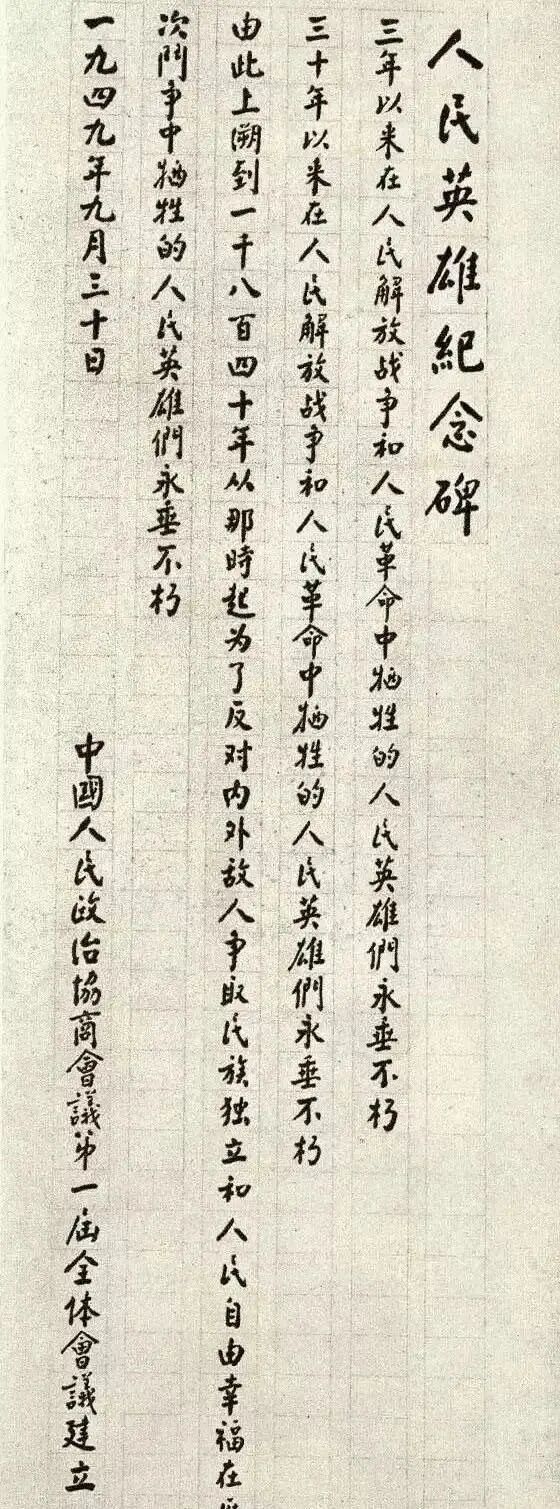 人民英雄紀念碑
三年以来在人民解放战争和人民革命中牺牲的人民英雄們永垂不朽
三十年以来在人民解放战争和人民革命中牺牲的人民英雄們永垂不朽
由此上溯到一千八百四十年从那時起为了反对内外敌人争取民族独立和人民自由幸福在
次鬥争中牺牲的人民英雄們永垂不朽
一九四九年九月三十日
中國人民政治協商會議第一届全体會議建立